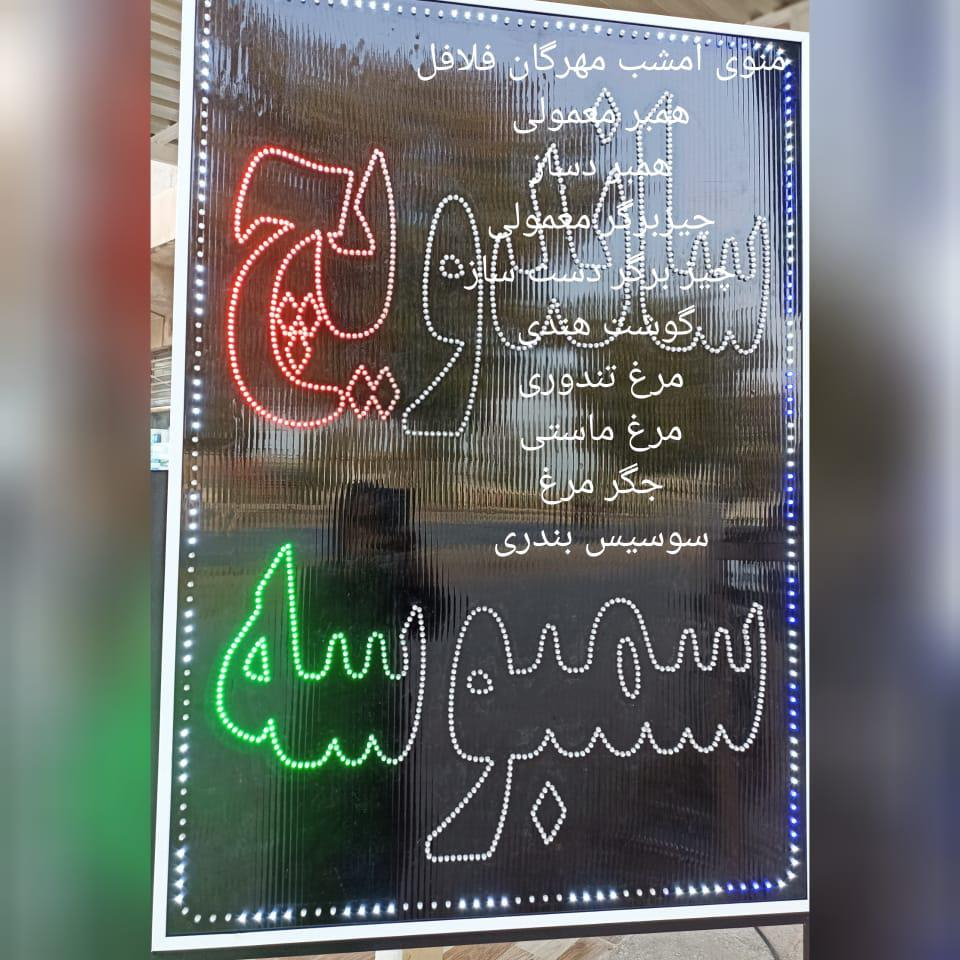 منوی امشب مهرگان فلافل
همبر معمولی
همبر دساز
چیزبرگر معمولی
چیز برگر دست ساز
گوشت هندی
مرغ تندوری
مرغ ماستی
جگر مرغ
سوسیس بندری
ساندویچ
سمبوسه